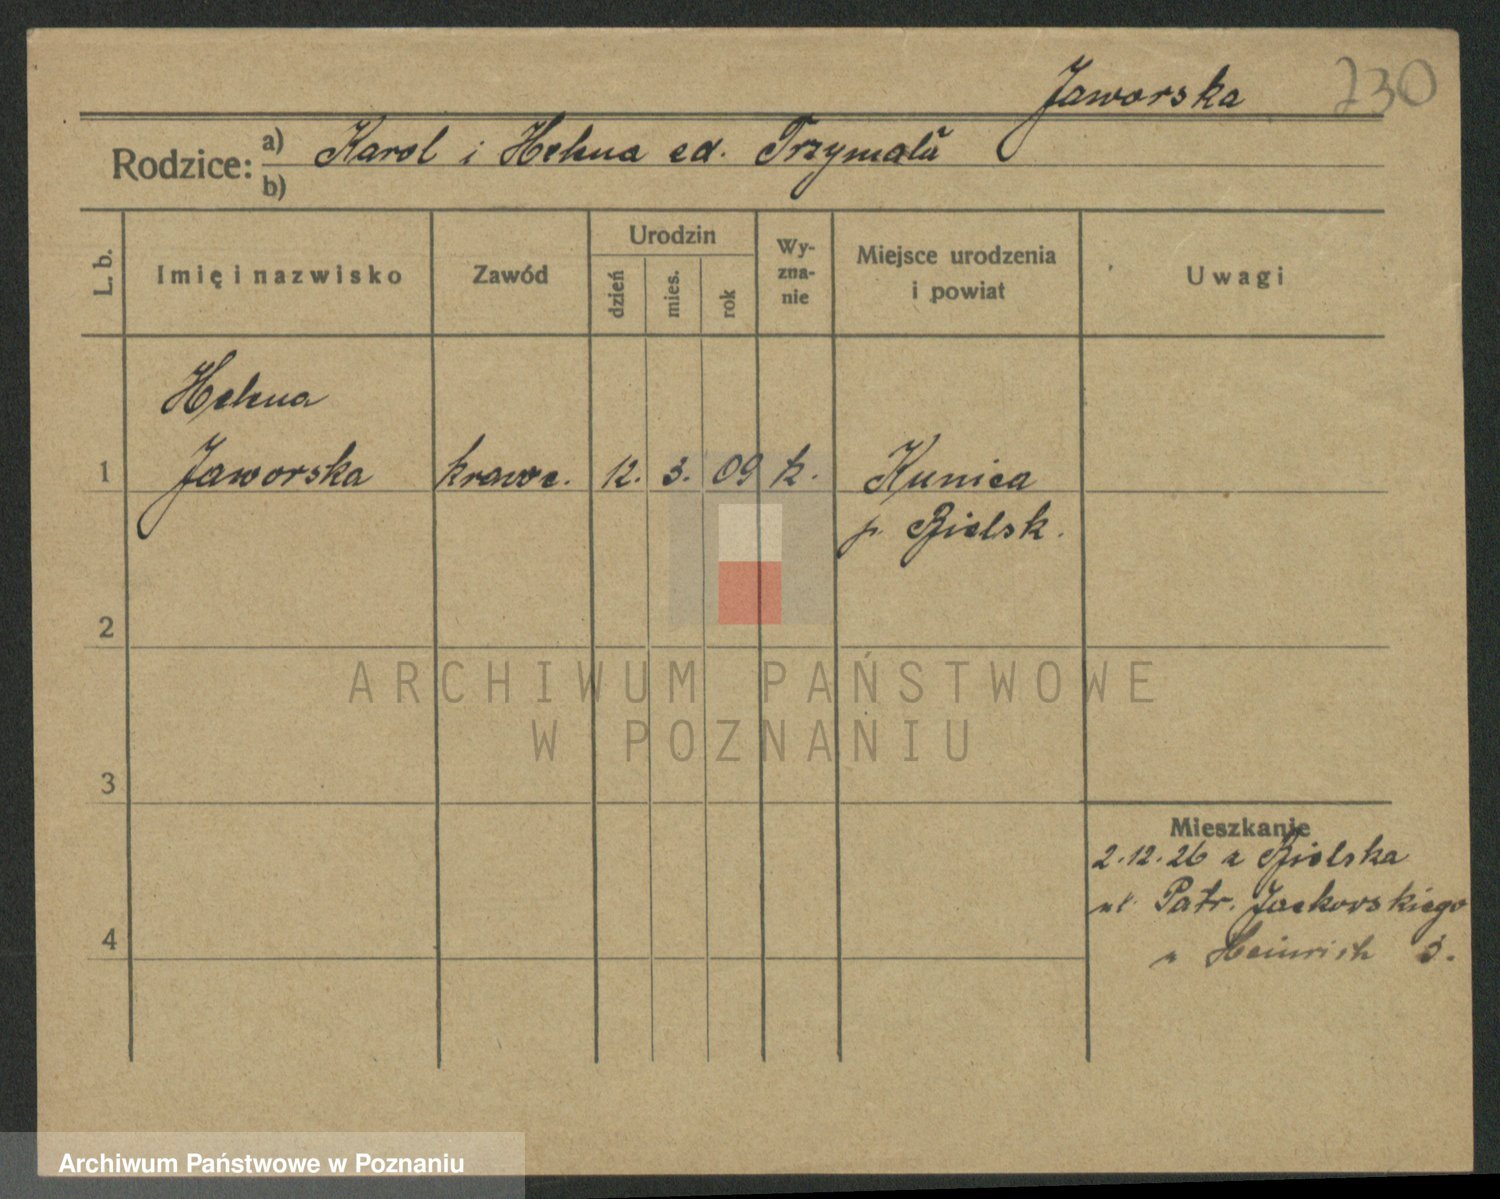 Jaworska 230
Rodzice: a) Karol i Helena cd. Trzymała
b)
L. b. Imię i nazwisko Zawód Urodzin dzień mies. rok Wyznanie Miejsce urodzenia i powiat Uwagi
Helena
1 Jaworska krawc. 12. 3. 09 k. Kunica
p. Bielsk.
2
3
Mieszkanie
2.12.26 z Bielska
ul. Patr. Jackowskiego
4 u Heinrich 3.
ARCHIWUM PAŃSTWOWE
W POZNANIU
Archiwum Państwowe w Poznaniu